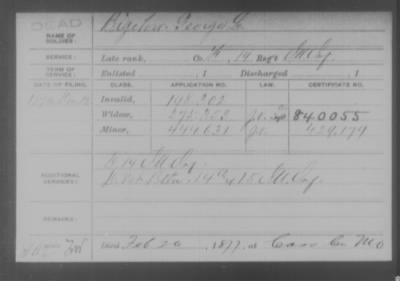 DEAD
NAME OF SOLDIER: Bigelow George G.
SERVICE: Late rank, Co. H, 14 Reg't Ill Inf.
TERM OF SERVICE: Enlisted , 1 Discharged , 1
DATE OF FILING. CLASS. APPLICATION NO. LAW. CERTIFICATE NO.
Invalid, 148.202
Widow, 275.252 840.055
Minor, 444.631 429.179
ADDITIONAL SERVICES: D 14 Ill Inf.
Battn. 14th & 15 Ill Inf.
REMARKS:
Died Feb 20 , 1877, at Cass Co Mo